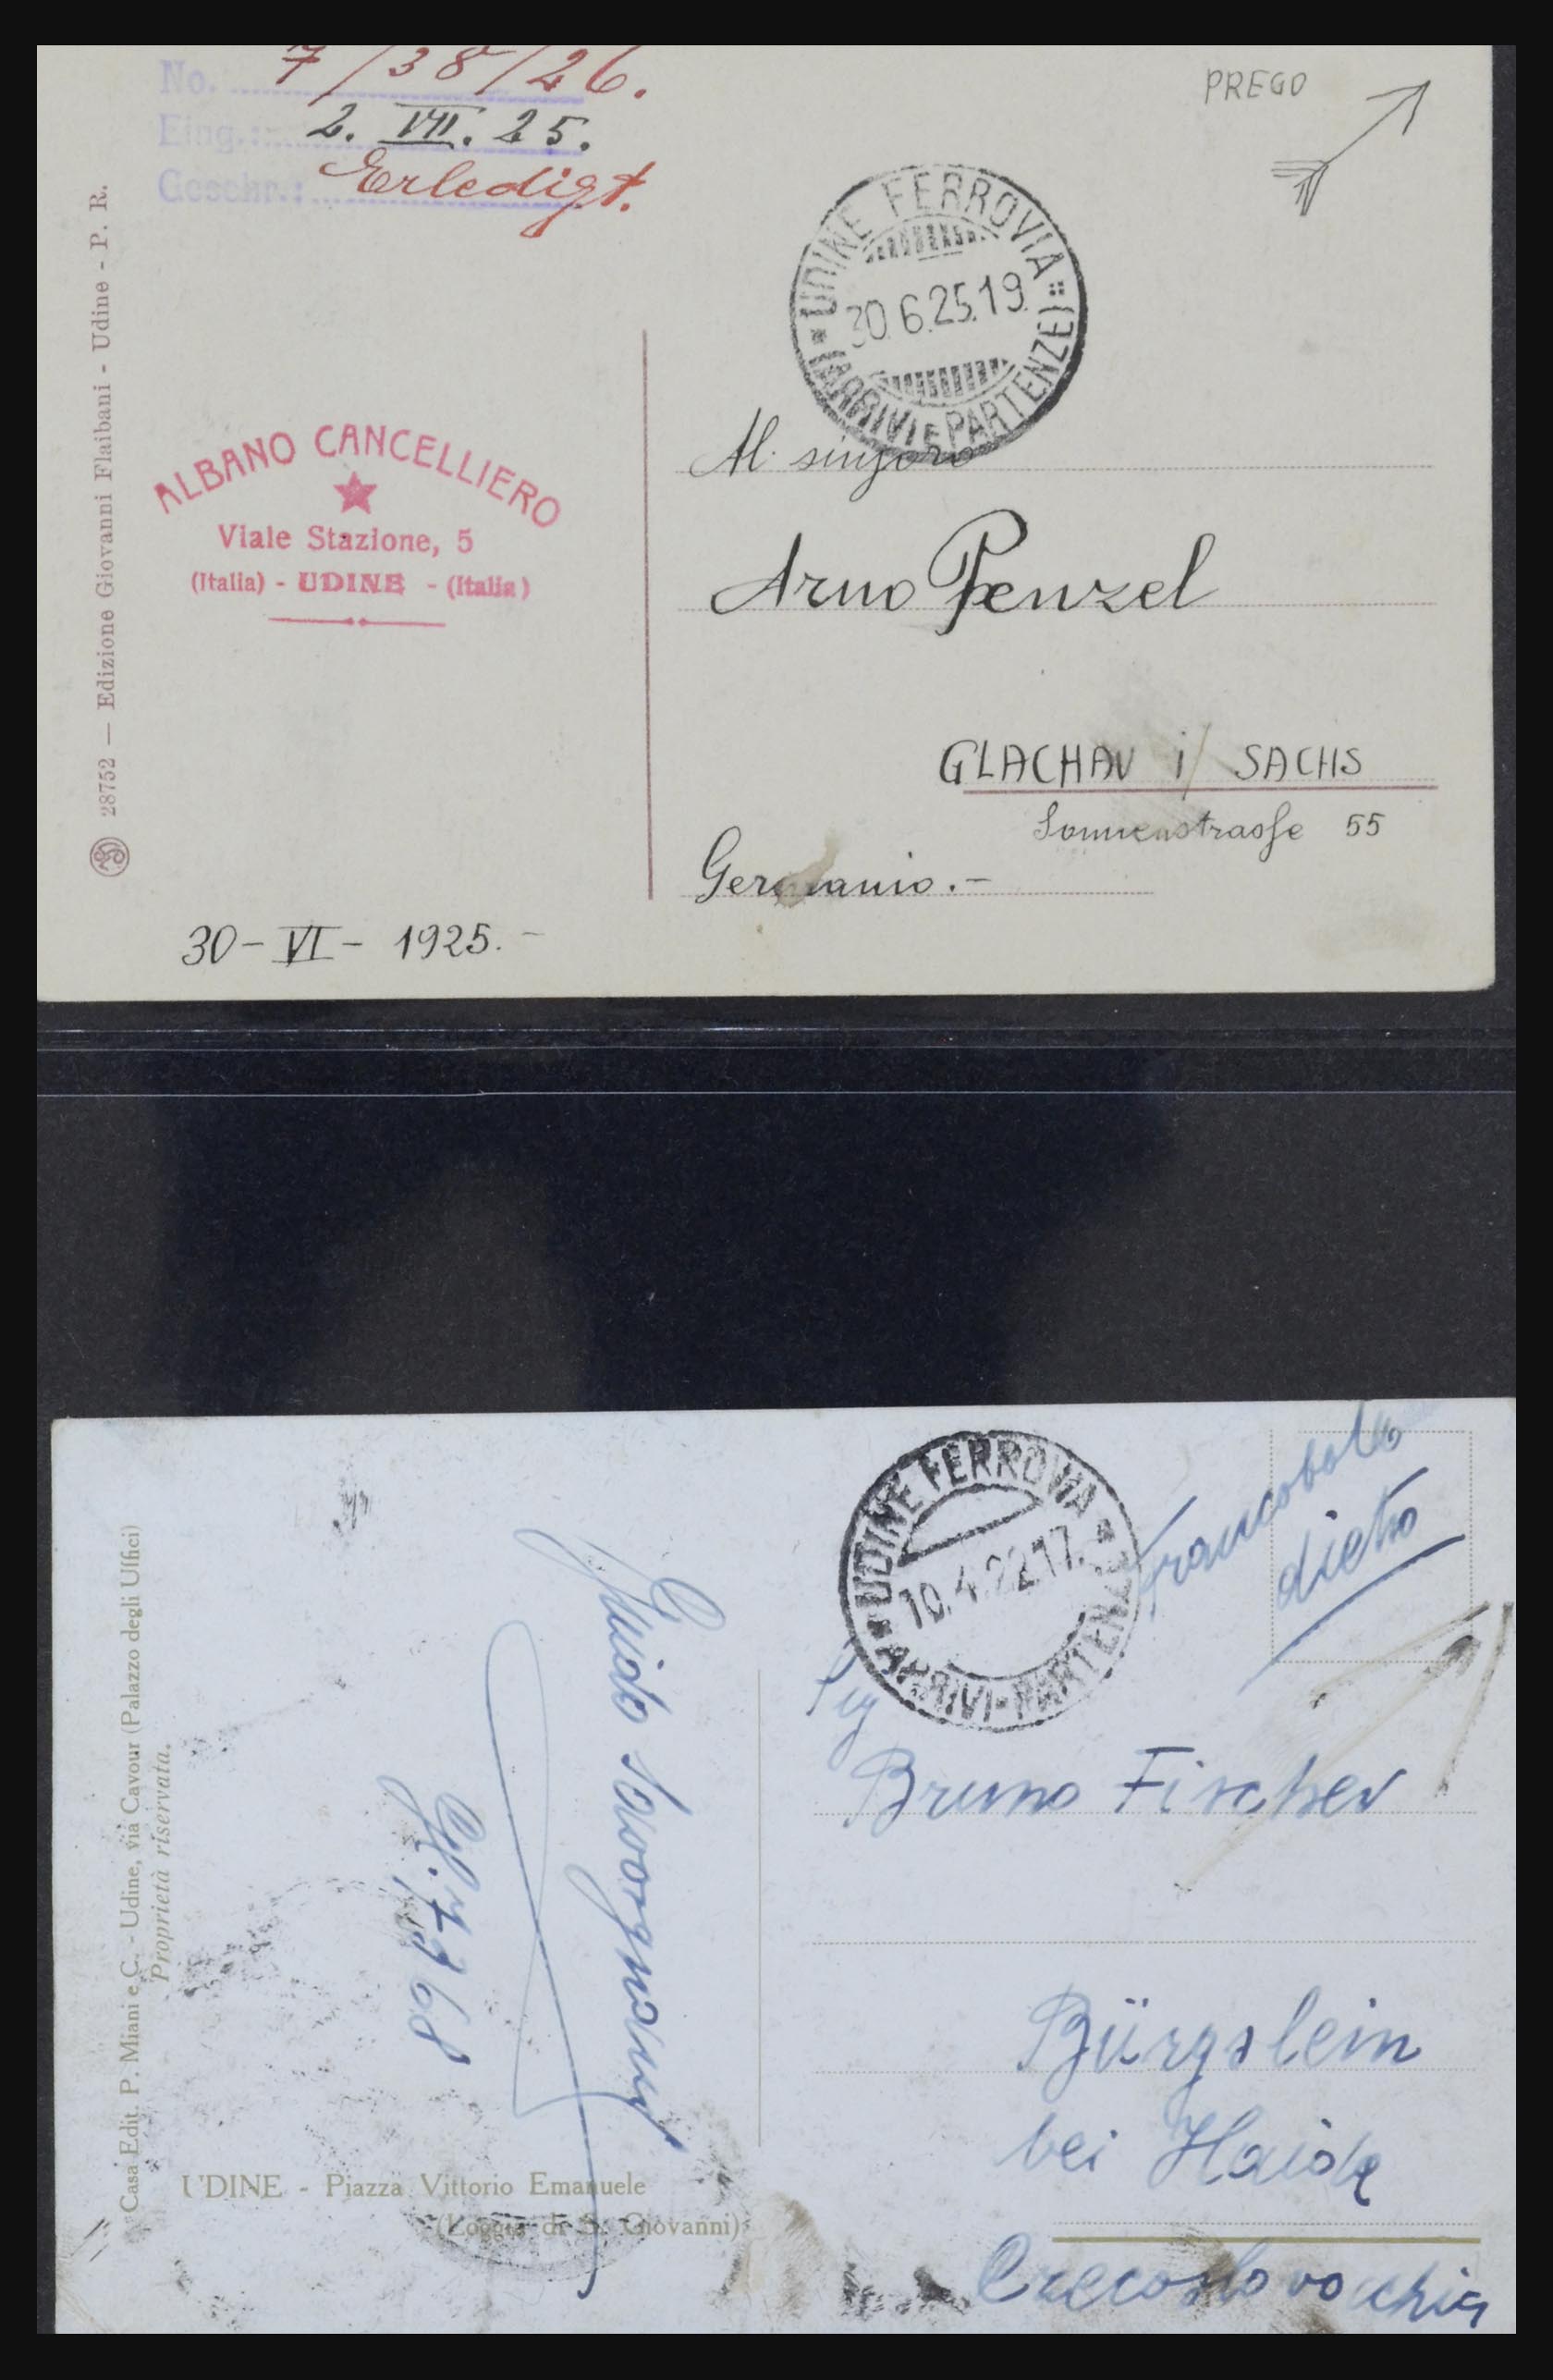 No. 7/38/26.
Eing.: 2. VII. 25.
Geschr.: Erledigt.
PREGO
UDINE FERROVIA
30.6.25.19
(ARRIVI E PARTENZE)
28752 — Edizione Giovanni Flaibani - Udine - P. R.
ALBANO CANCELLIERO
Viale Stazione, 5
(Italia) - UDINE - (Italia)
Al singore
Arno Penzel
GLACHAU i/ SACHS
Sonnenstrasse 55
Germania.-
30-VI-1925.-
UDINE FERROVIA
10.4.22.17.
ARRIVI-PARTENZE
francobollo
dietro
Sig
Bruno Fischer
Bürgslein
bei Haida
Crecoslovochia
Guido Savorgnani
7968
Casa Edit. P. Miani e C. - Udine, via Cavour (Palazzo degli Uffici)
Proprietà riservata.
UDINE - Piazza Vittorio Emanuele
(Loggia di S. Giovanni)